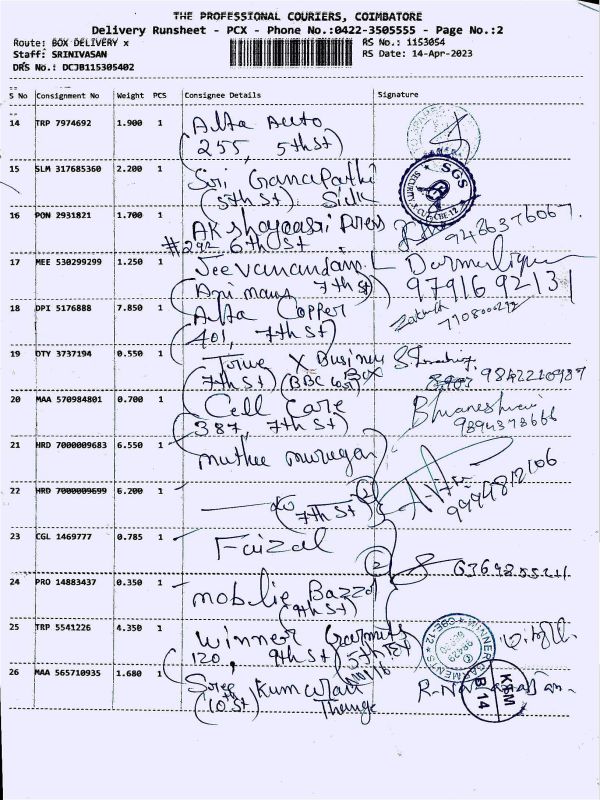 THE PROFESSIONAL COURIERS, COIMBATORE
Delivery Runsheet - PCX - Phone No.:0422-3505555 - Page No.:2
Route: BOX DELIVERY x
RS No.: 1153054
Staff: SRINIVASAN
RS Date: 14-Apr-2023
DRS No.: DCJB115305402
S No Consignment No Weight PCS Consignee Details Signature
14 TRP 7974692 1.900 1 Alfa Auto
(255, 5th St)
15 SLM 317685360 2.200 1 Siri Ganapathi
(5th St) Silk
SGS
SECURITY
CBE-12
16 PON 2931821 1.700 1 AKshayaasri Press
#292 6th St
9486376067.
17 MEE 530299299 1.250 1 Jeevanandam L
(Animans 7th St)
9791692131
18 DPI 5176888 7.850 1 Alfa Copper
401, 7th St)
19 OTY 3737194 0.550 1 X Business
(7th St) (BBC Box
9842210987
20 MAA 570984801 0.700 1 Cell Care
(387, 7th St)
Bhuaneshwari
9894378666
21 HRD 7000009683 6.550 1 muthu murugan
22 HRD 7000009699 6.200 1
(7th St)
9994812106
23 CGL 1469777 0.785 1 Faizal
2
24 PRO 14883437 0.350 1 mobile Bazzar
(9th St)
25 TRP 5541226 4.350 1 Winner Garments
120, 9th St)
WINNER GARMENTS
CBE-12
26 MAA 565710935 1.680 1 Sree Kumaran
(10th St) Thanga
KSM
B 14